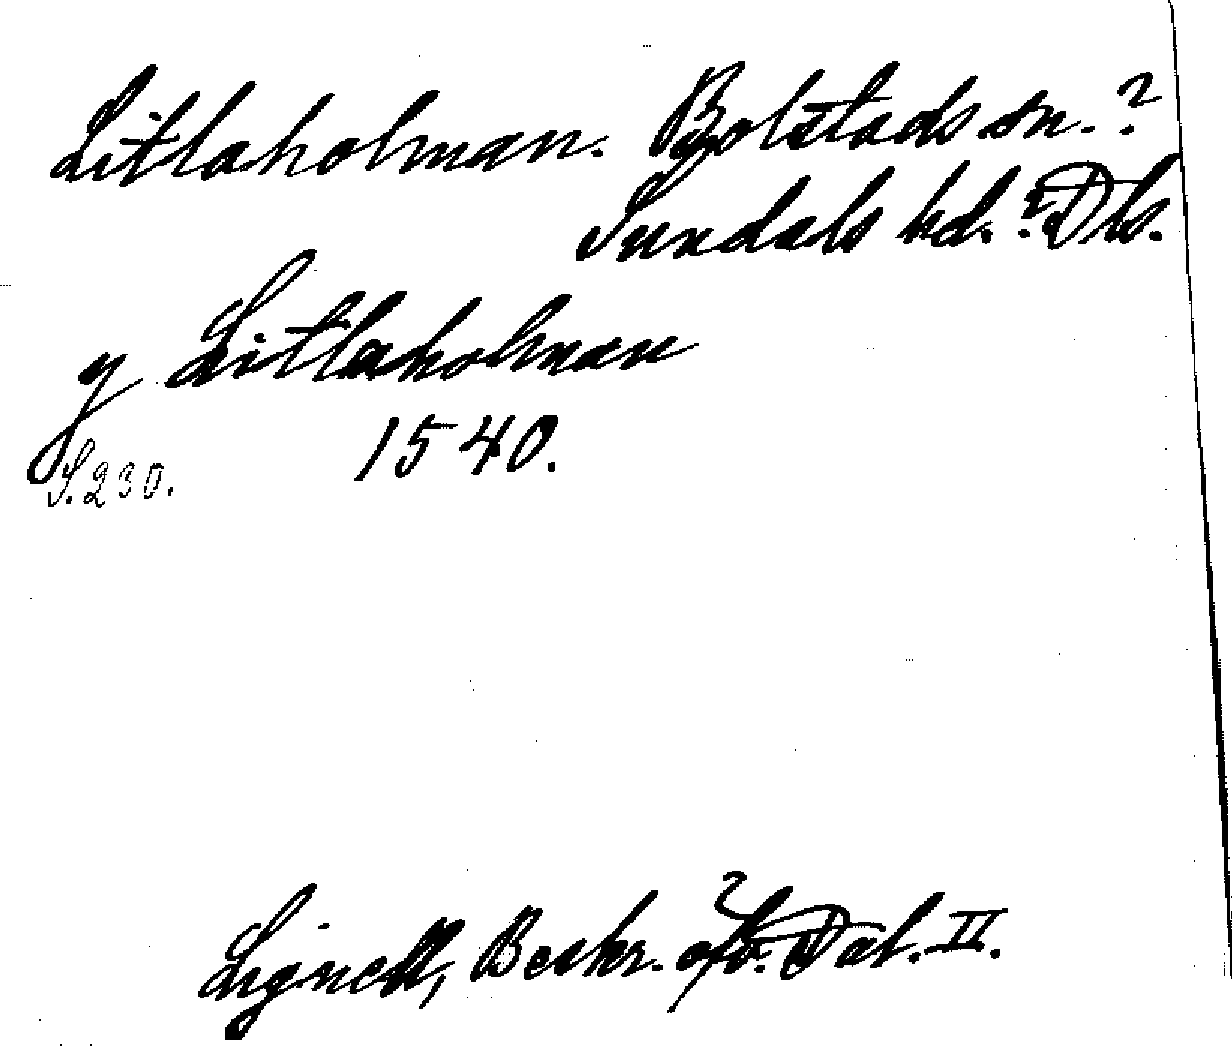 Litlaholman. Bolstads sn.?
Sundals hd.? Dls.
y Litlaholman
1540.
S. 230.
Lignell, Beskr. öfv. Dal. II.